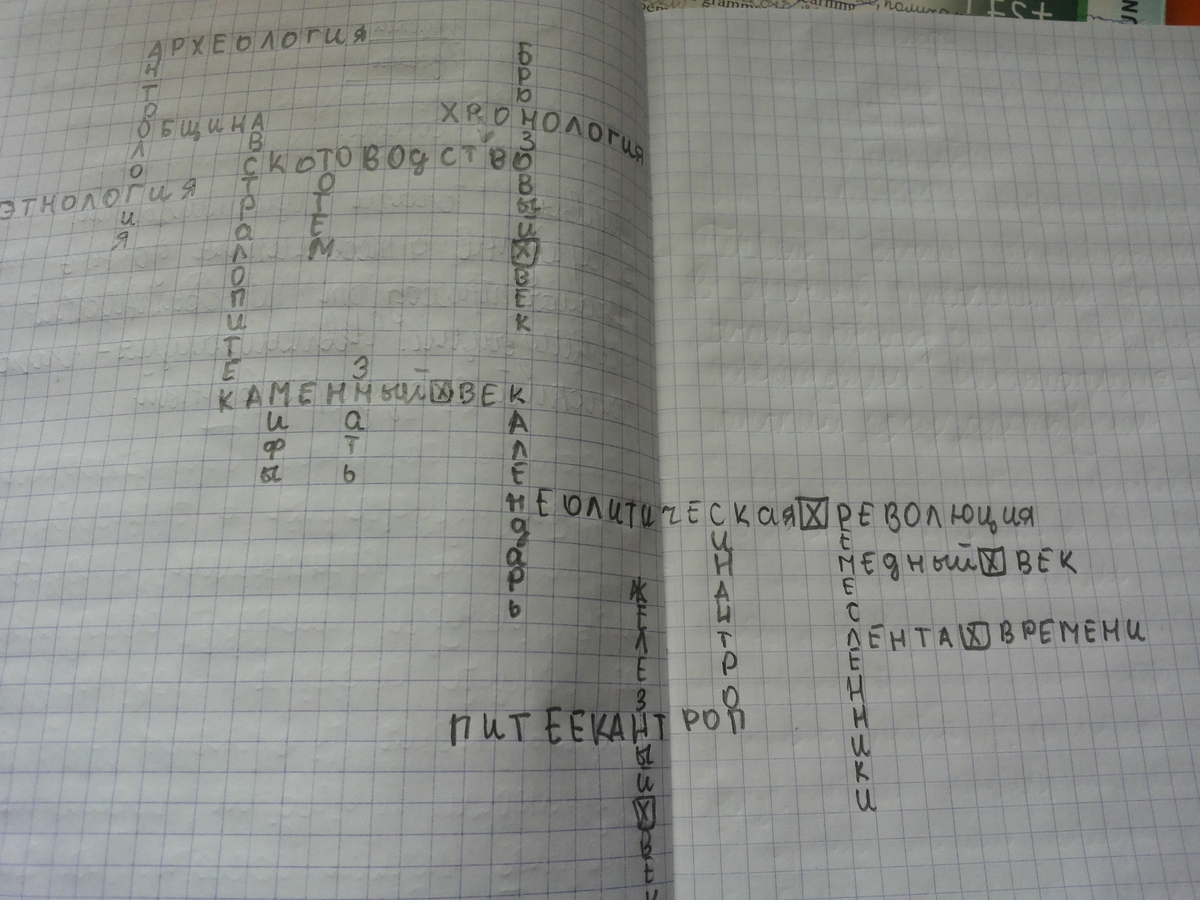 АРХЕОЛОГИЯ
АНТРОЛОГИЯ
БРОНЗОВЫЙ X ВЕК
ХРОНОЛОГИЯ
ОБЩИНА
АВСТРАЛОПИТЕК
СКОТОВОДСТВО
ТОТЕМ
ЭТНОЛОГИЯ
ЗНАТЬ
КАМЕННЫЙ X ВЕК
МИФЫ
КАЛЕНДАРЬ
НЕОЛИТИЧЕСКАЯ X РЕВОЛЮЦИЯ
СИНАНТРОП
РЕМЕСЛЕННИКИ
МЕДНЫЙ X ВЕК
ЖЕЛЕЗНЫЙ X
ЛЕНТА X ВРЕМЕНИ
ПИТЕЕКАНТРОП